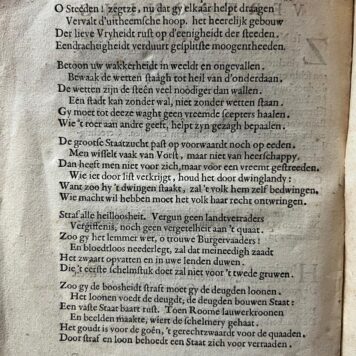 O Steeden! zegtze, nu dat gy elkaêr helpt draagen
Vervalt d'uitheemsche hoop. het heerelijk gebouw
Der lieve Vryheidt rust op d'eenigheidt der steeden.
Eendrachtigheidt verduurt gesplitste moogentheeden.
Betoon uw wakkerheidt in weeldt en ongevallen.
Bewaak de wetten staâgh tot heil van d'onderdaan.
De wetten zijn de steên veel noodiger dan wallen.
Een stadt kan zonder wal, niet zonder wetten staan.
Gy moet tot deeze waght geen vreemde scepters haalen.
Wie 't roer aan andre geeft, helpt zyn gezagh bepaalen.
De grootse Staatzucht past op voorwaardt noch op eeden.
Men wisselt vaak van Vorst, maar niet van heerschappy.
Dan heeft men niet voor zich, maar voor een vreemt gestreeden.
Wie iet door list verkrijgt, houd het door dwinglandy:
Want zoo hy 't dwingen staakt, zal 't volk hem zelf bedwingen.
Wie macht wil hebben moet het volk haar recht ontwringen.
Straf alle heilloosheit. Vergun geen landtverraders
Vergiffenis, noch geen vergetelheit aan 't quaat.
Zoo gy het lemmer wet, o trouwe Burgervaaders!
En bloedtloos neederlegt, zal dat meineedigh zaadt
Het zwaart opvatten en in uwe lenden duwen.
Die 't eerste schelmstuk doet zal niet voor 't twede gruwen.
Zoo gy de boosheidt straft moet gy de deugden loonen.
Het loonen voedt de deugdt, de deugden bouwen Staat:
Een vaste Staat baart rust. Toen Roome lauwerkroonen
En beelden maakte, wiert de schelmery gehaat.
Het goudt is voor de goên, 't gerechtzwaardt voor de quaaden.
Door straf en loon behoedt een Staat zich voor verraaden.